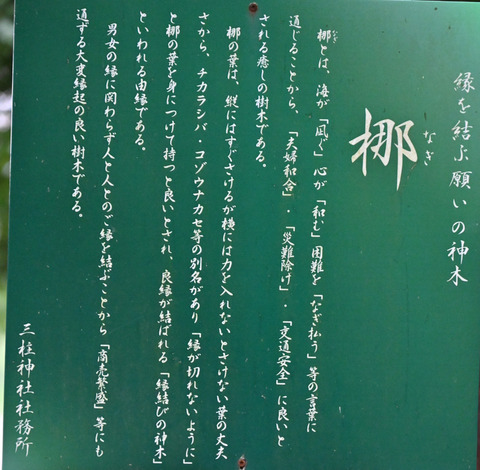 縁を結ぶ願いの神木
梛
なぎ
梛とは、海が「凪ぐ」心が「和む」困難を「なぎ払う」等の言葉に
通じることから、「夫婦和合」・「災難除け」・「交通安全」に良いと
される癒しの樹木である。
梛の葉は、縦にはすぐさけるが横には力を入れないとさけない葉の丈夫
さから、チカラシバ・コゾウナカセ等の別名があり「縁が切れないように」
と梛の葉を身につけて持つと良いとされ、良縁が結ばれる「縁結びの神木」
といわれる由縁である。
男女の縁に関わらず人と人とのご縁を結ぶことから「商売繁盛」等にも
通ずる大変縁起の良い樹木である。
三柱神社社務所